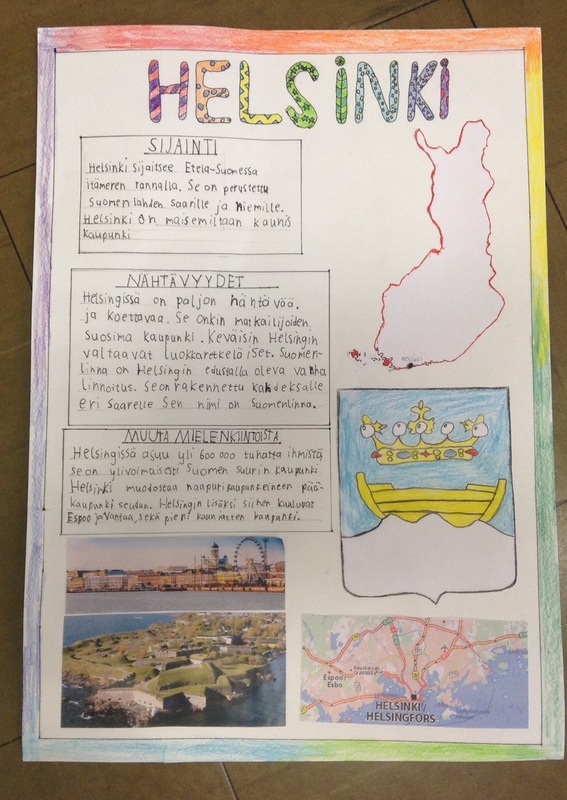 HELSINKI
SIJAINTI
Helsinki sijaitsee Etelä-Suomessa
itämeren rannalla. Se on perustettu
Suomenlahden saarille ja niemille.
Helsinki on maisemiltaan kaunis
kaupunki
NÄHTÄVYYDET
Helsingissä on paljon nähtävää.
ja koettavaa. Se onkin matkailijoiden
suosima kaupunki. Keväisin Helsingin
valtaavat luokkaretkeläiset. Suomen-
linna on Helsingin edustalla oleva vanha
linnoitus. Se on rakennettu kahdeksalle
eri saarelle Sen nimi on Suomenlinna.
MUUTA MIELENKIINTOISTA
Helsingissä asuu yli 600 000 tuhatta ihmistä
se on ylivoimaisesti Suomen suurin kaupunki
Helsinki muodostaa naapurikaupunkeineen pää-
kaupunki seudun. Helsingin lisäksi siihen kuuluvat
Espoo ja Vantaa, sekä pieni kauniaisten kaupunki.
Espoo/
Esbo
HELSINKI/
HELSINGFORS